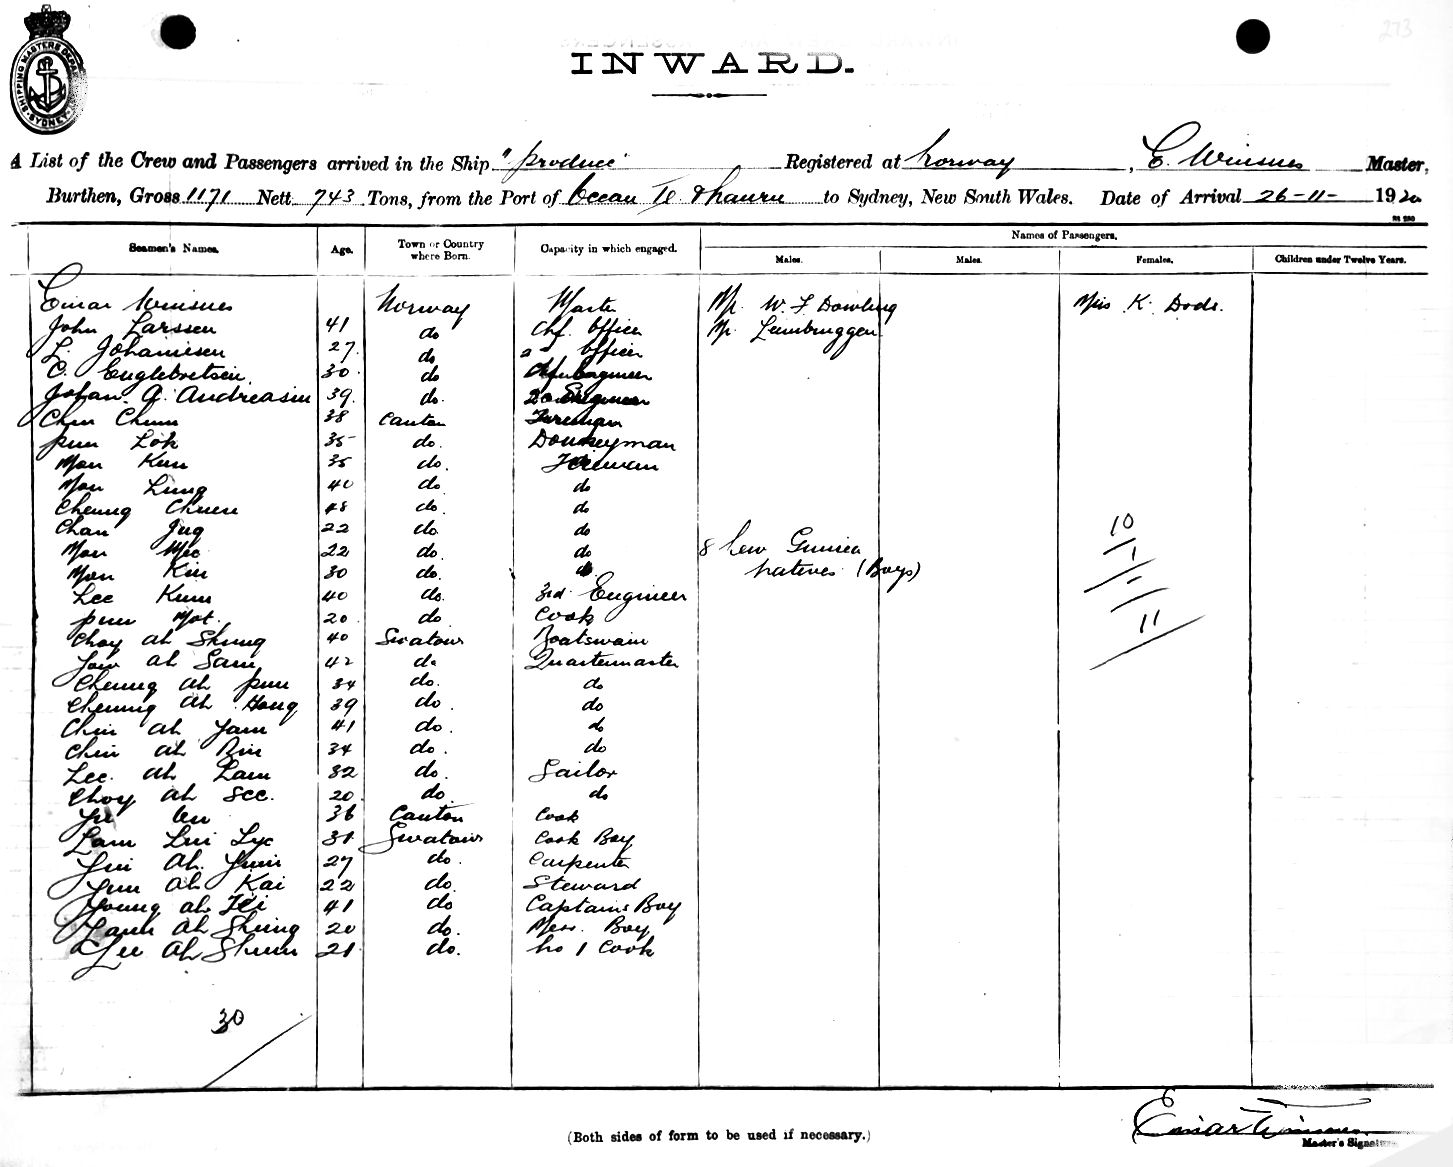 273
SHIPPING MASTERS DEPT SYDNEY
INWARD.
A List of the Crew and Passengers arrived in the Ship "Produce" Registered at Norway, E. Winsnes Master,
Burthen, Gross 1171 Nett 743 Tons, from the Port of Ocean Is & Nauru to Sydney, New South Wales. Date of Arrival 26-11-1920
Names of Passengers.
Seamen's Names. Age. Town or Country where Born. Capacity in which engaged. Males. Males. Females. Children under Twelve Years.
Einar Winsnes Norway Master Mr. W. F Dowling Miss K. Dods.
John Larssen 41 do Chf. Officer Mr
L. Johannesen 27 do 2nd Officer
C. Englebretsen 30 do Chf Engineer
Johan. A. Andreasen 39 do. 2nd Engineer
Chin Chun 38 Canton Fireman
Pun Lok 35 do. Donkeyman
Mon Kun 35 do. Fireman
Mon Lung 40 do do
Cheung Chuen 48 do. do
Chan Jug 22 do. do
Mon Mee 22 do. do 8 New Guinea
Mon Kin 30 do. do natives (Boys)
Lee Kum 40 do. 3rd Engineer
Pun Mot. 20 do Cook
Choy ah Shung 40 Swatow Boatswain
Yow ah Sam 42 do Quartermaster
Cheung ah Pun 34 do. do
Cheung ah Hong 39 do. do
Chin ah Yam 41 do. do
Chin ah Bin 34 do. do
Lee. ah Lam 32 do. Sailor
Choy ah See. 20 do. do
36 Canton Cook
Lam Lui Lye 31 Swatow Cook Boy
Yui ah. Yuin 27 do. Carpenter
Yun ah Kai 22 do. Steward
Young ah Fei 41 do Captains Boy
Lam ah Shing 20 do. Mess. Boy
Lee ah Shum 21 do. No 1 Cook
10
1
-
11
30
Einar Winsnes
Master's Signature
(Both sides of form to be used if necessary.)